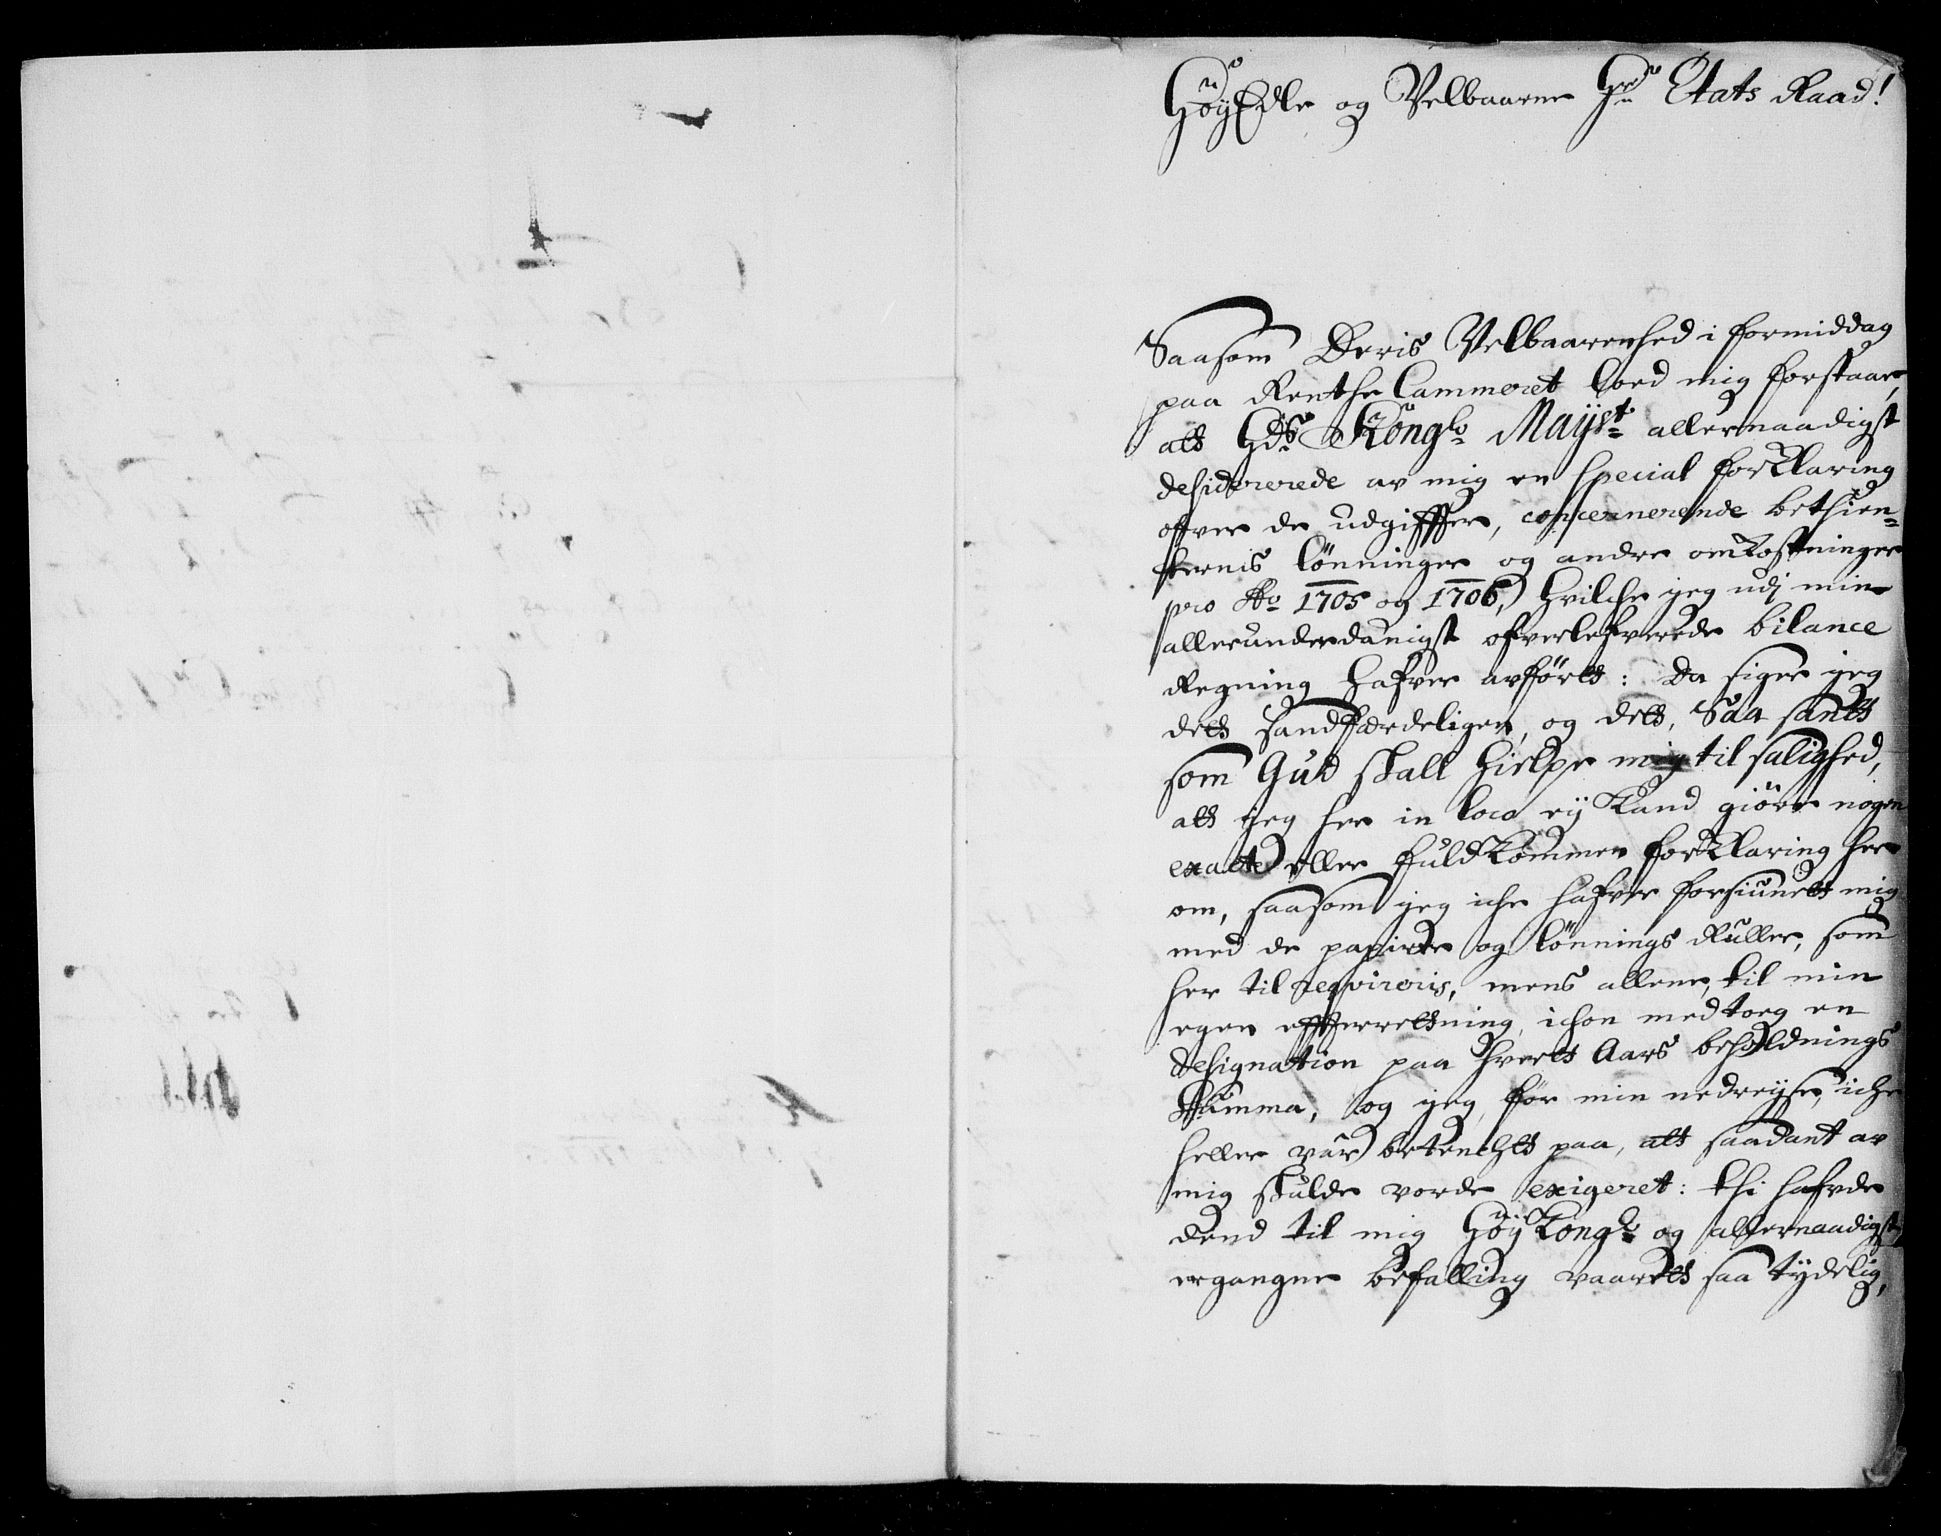 HöyEdle og Velbaarne Hr Etats Raad!
Saasom Deris Velbaarenhed i formiddag
paa Renthe Cammeret loed mig forstaae,
att Hds Kongl. Mayst. allernaadigst
desidererede av mig en special forklaring
ofver de udgiffter, concernerende bethien-
ternis lönninger og andre omkostninger
pro Ao 1705 og 1706, hvilche jeg udj min
allerunderdanigst ofverlefverede bilance
Regning hafver anförtt: Da siger jeg
dett sandfærdeligen, og dett, Saa santt
som Gud skall hielpe mig til salighed,
att jeg her in loco ey kand giöre nogen
exacte eller fuldkommen forklaring her
om, saasom jeg iche hafver forsiunett mig
med de papirer og lönnings Ruller, som
her til reqvireris, mens allene, til min
egen effterrettning, ichon medtoeg en
designation paa hvertt Aars beholdnings
Summa, og jeg, for min nedreyse, iche
heller var betenchtt paa, att saadant av
mig skulde vorde exigeret: thi hafde
dend til mig Höy Kongl. og allernaadigst
ergangne befalling vaarett saa tydelig,